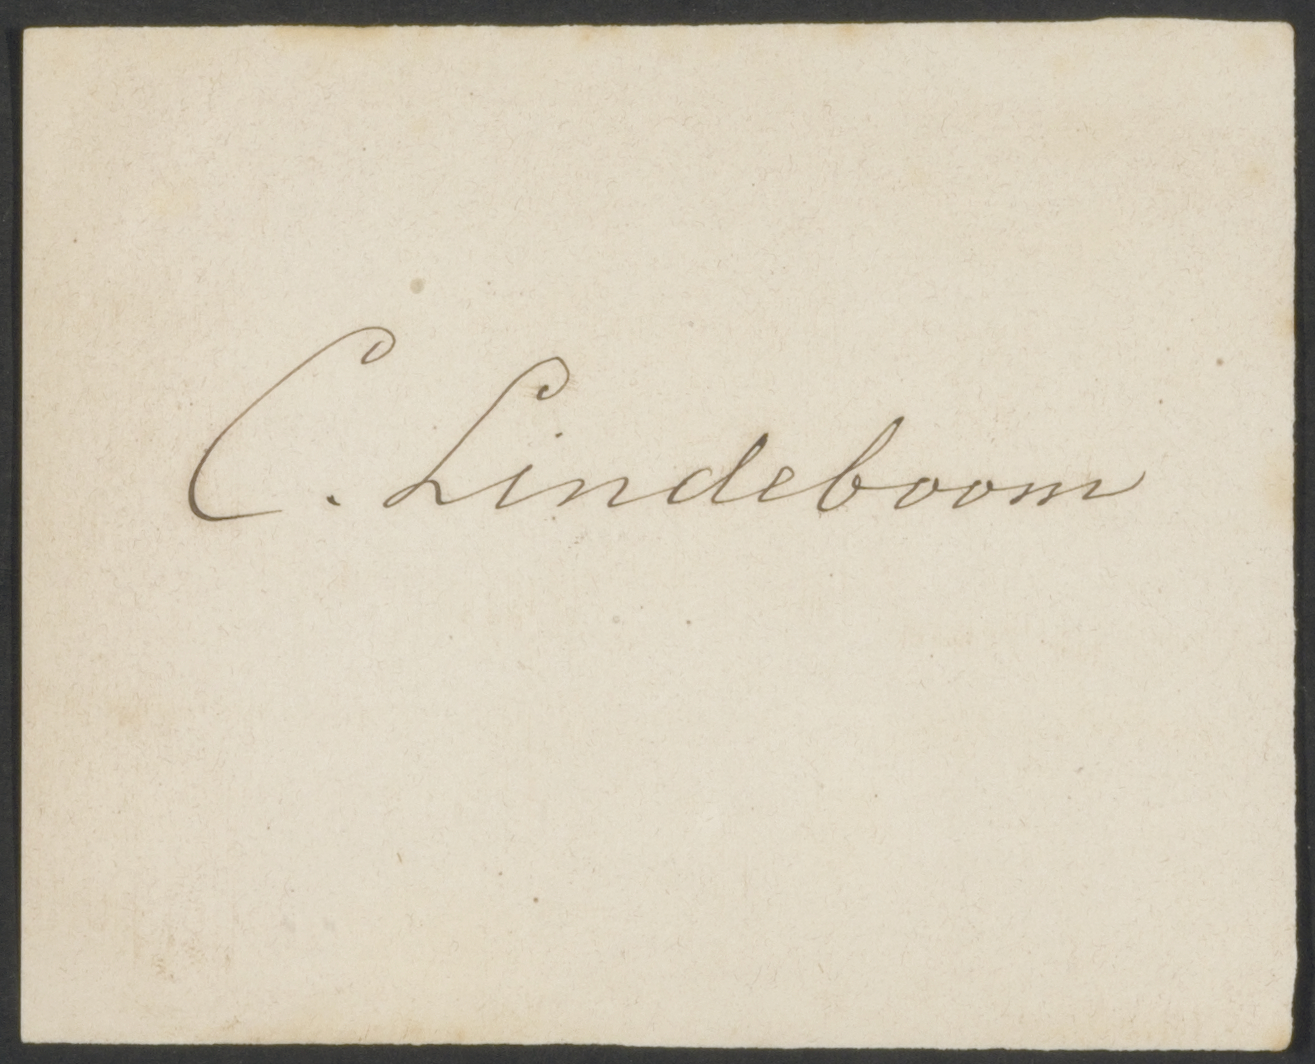 C. Lindeboom